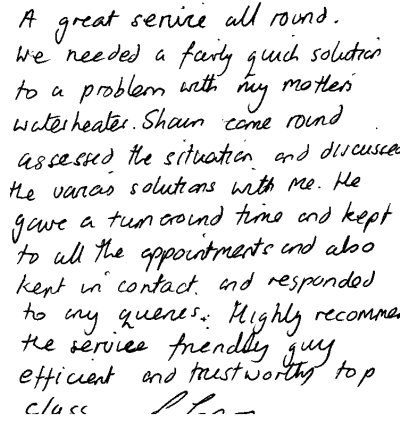 A great service all round.
We needed a fairly quick solution
to a problem with my mothers
waterheater. Shaun came round
assessed the situation and discussed
the varais solutions with me. He
gave a turnaround time and kept
to all the appointments and also
kept in contact and responded
to any queries. Highly recommen
the service friendly guy
efficient and trustworthy top
class